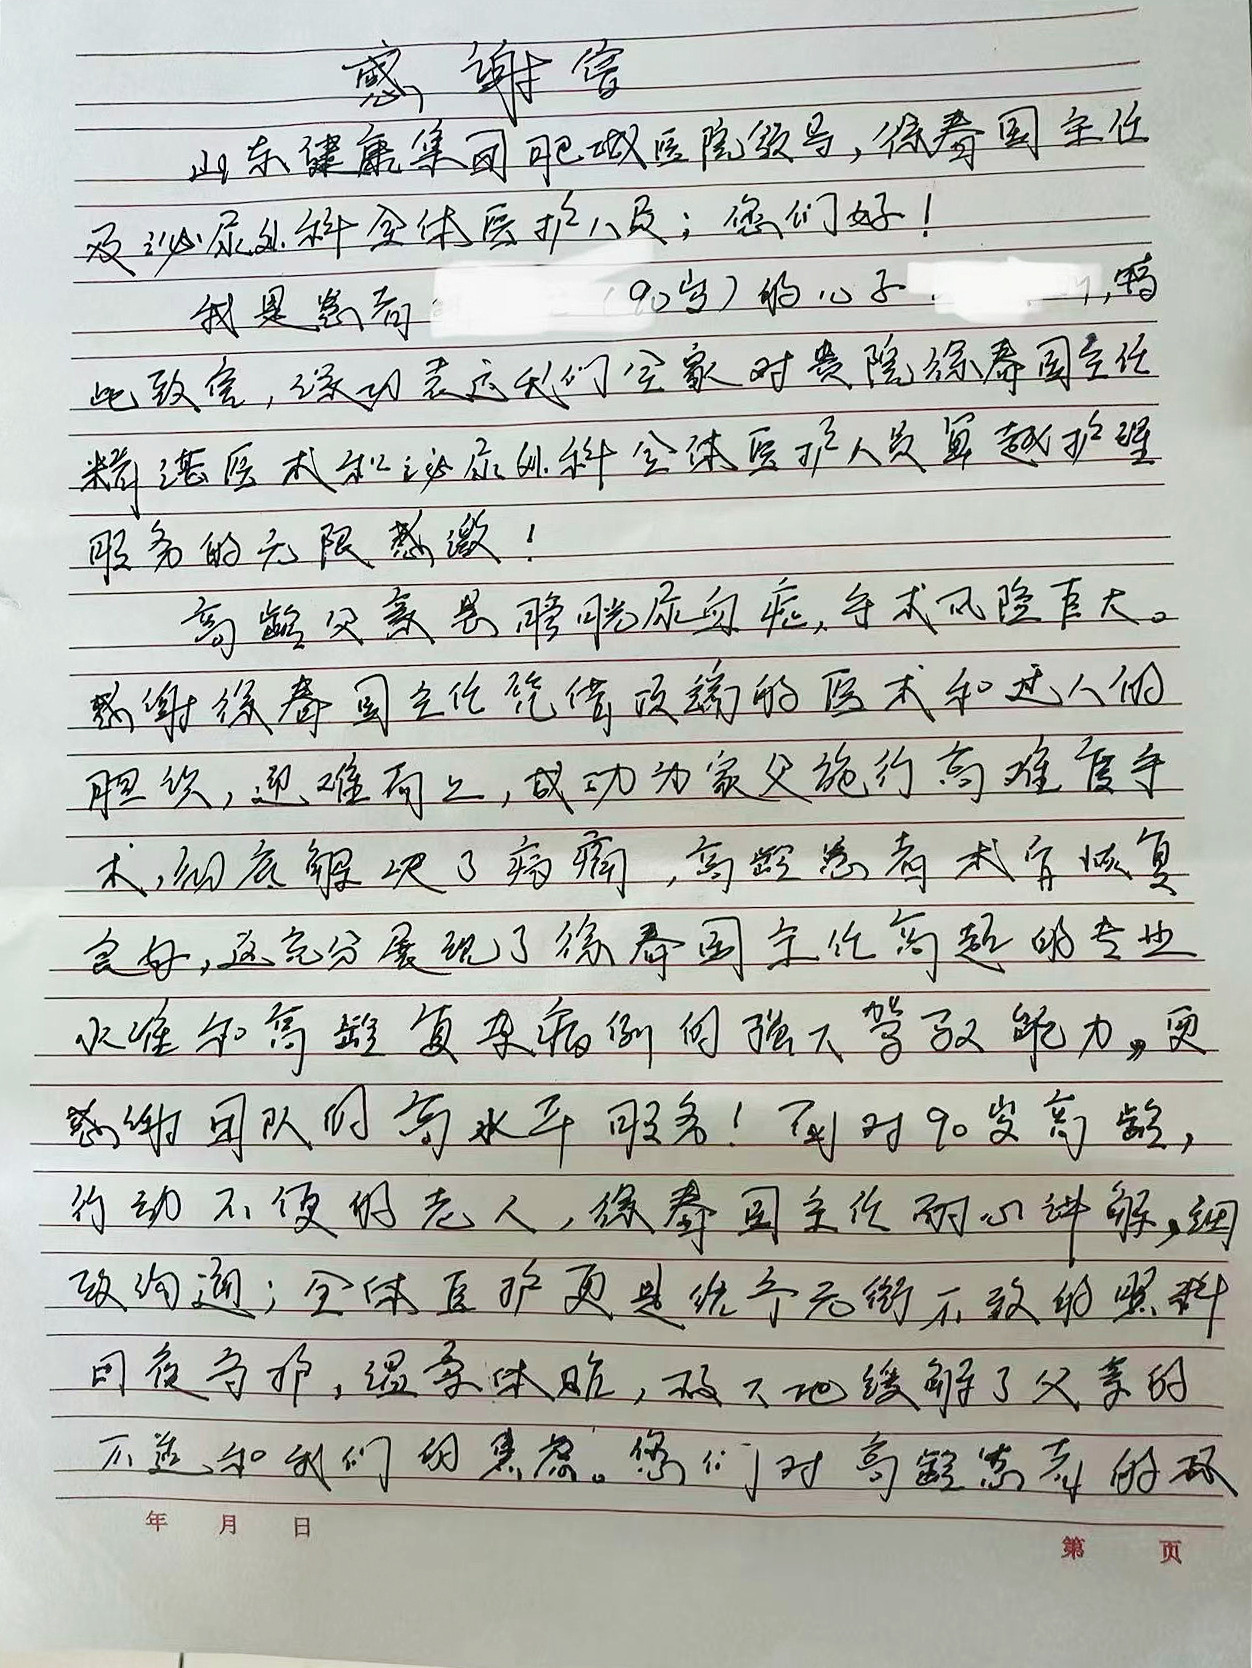 感谢信
山东健康集团肥城医院领导，徐春国主任
及泌尿外科全体医护人员；您们好！
我是患者（90岁）的心子，特
此致信，深切表达我们全家对贵院徐春国主任
精湛医术和泌尿外科全体医护人员卓越护理
服务的无限感激！
高龄父亲患膀胱尿血症，手术风险巨大。
感谢徐春国主任凭借顶端的医术和过人的
胆识，迎难而上，成功为家父施行高难度手
术，彻底解决了病痛，高龄患者术后恢复
良好，这充分展现了徐春国主任高超的专业
水准和高龄复杂病例的强大驾驭能力。更
感谢团队的高水平服务！面对90岁高龄，
行动不便的老人，徐春国主任耐心讲解，细
致沟通；全体医护更是给予无微不致的照料
日夜守护，温柔体贴，极大地缓解了父亲的
不适和我们的焦虑。您们对高龄患者的
年 月 日
第 页